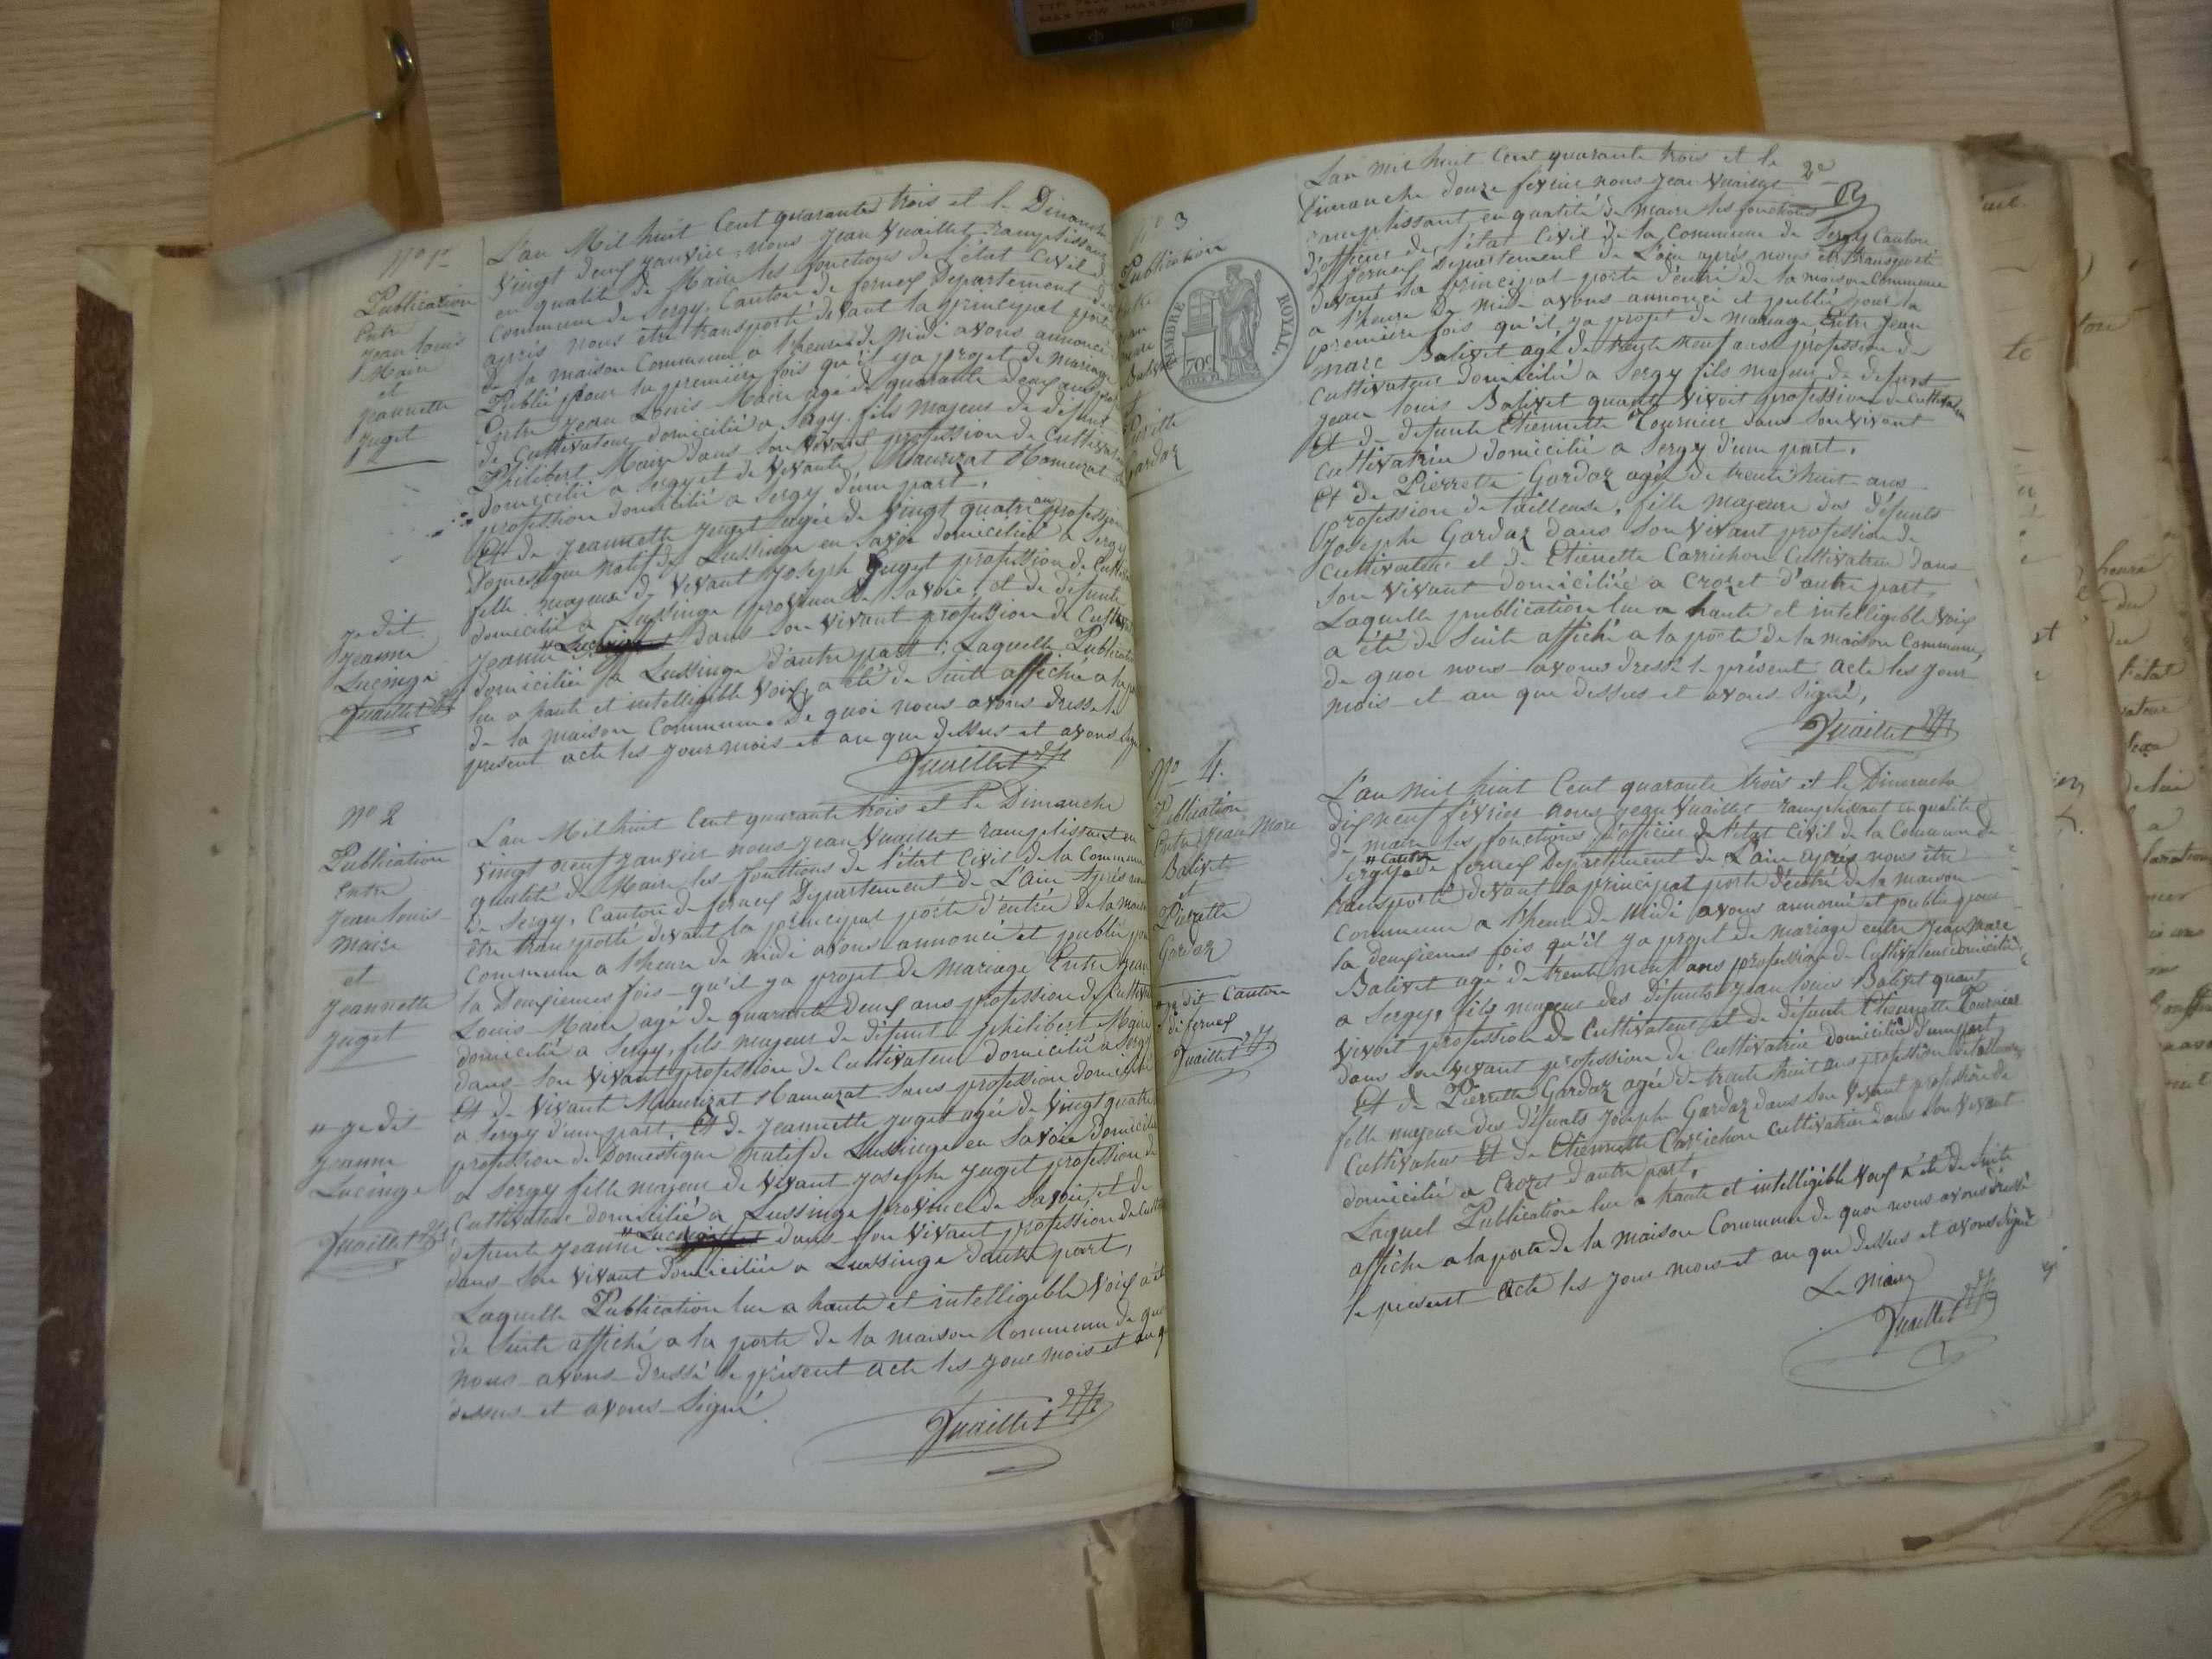 No 1er
Publication
Entre
Jean Louis
Maire
et
Jeannette
Juget
L'an Mil huit Cent quarante trois et le Dimanche
vingt deux janvier nous Jean Vuaillet ramplissant
en qualité de Maire les fonctions de l'état Civil de
Commune de Sergy, Canton de fernex Departement de
après nous etre transporté devant la principal porte
de la maison Commune a l'heure de Midi avons annoncé
Publié pour la première fois qu'il y a projet de mariage
Entre Jean Louis Maire agé de quarante deux ans
de Cultivateur domicilié a Sergy fils majeur de défunt
Philibert Maire dans son vivant profession de Cultivateur
domicilié a Sergy et de vivante Maurizat Mamurat
profession domicilié a Sergy d'une part,
Et de Jeannette Juget agée de vingt quatre ans profession
domestique natif de Lussinge en Savoie domiciliée a Sergy
fille majeur de vivant Joseph Juget profession de Cultivateur
domicilié a Lussinge province de Savoie, et de défunte
Jeanne " Lucinge dans son vivant profession de Cultivat
domiciliée a Lussinge d'autre part: Laquelle Publication
lue a haute et intelligible voix, a été de suite affiché a la
de la maison Commune. de quoi nous avons dressé le
présent acte les jour mois et an que dessus et avons signé
Vuaillet
je dit
Jeanne
Lucinge
Vuaillet
No 2
Publication
Entre
Jean Louis
Maire
et
Jeannette
Juget
L'an Mil huit Cent quarante trois et le Dimanche
vingt neuf janvier nous Jean Vuaillet ramplissant en
qualité de Maire les fonctions de l'état Civil de la Commune
de Sergy, Canton de fernex Departement de L'ain Après nous
être transporté devant la principal porte d'entrée de la maison
Commune a l'heure de midi avons annoncé et publié pour
la Deuxiemes fois qu'il y a projet de Mariage Entre Jean
Louis Maire agé de quarante Deux ans profession de Cultiva
domicilié a Sergy, fils majeur de défunt philibert Maire
dans son vivant profession de Cultivateur domicilié a Sergy
Et de vivante Maurizat Mamurat Sans profession domicilié
a Sergy d'une part, Et de Jeannette Juget agée de vingt quatre
profession de Domestique natif de Lussinge en Savoie Domicilié
a Sergy fille majeur de vivant Joseph Juget profession de
Cultivateur domicilié a Lussinge province de Savoie, et de
defunte Jeanne " Lucinge dans son vivant profession de Culti
dans son vivant domiciliée a Lussinge d'autre part,
Laquelle Publication lue a haute et intelligible voix a été
de suite affiché a la porte de la maison Commune de quoi
nous avons dressé le présent acte les jour mois et an que
dessus et avons signé
Vuaillet
" je dit
Jeanne
Lucinge
Vuaillet
No 3
Publication
TIMBRE ROYAL.
70c
Gardaz
2e
L'an mil huit Cent quarante trois et le
Dimanche douze février nous Jean Vuaillet
ramplissant en qualité de maire les fonctions
d'officier de l'état Civil de la Commune de Sergy Canton
de fernex Departement de L'ain après nous etre transporté
devant la principal porte d'entré de la maison Commune
a l'heure de midi avons annoncé et publié pour la
première fois qu'il y a projet de mariage Entre Jean
marc Balivet agé de trente neuf ans profession de
Cultivateur domicilié a Sergy fils majeur de defunt
Jean Louis Balivet quant vivoit profession de Cultivateur
Et de defunte Etiennette Tournier dans son vivant
Cultivatrice domicilié a Sergy d'une part.
Et de Pierrette Gardaz agée de trente huit ans
Profession de tailleuse, fille majeure des défunts
Joseph Gardaz dans son vivant profession de
Cultivateur et de Etiennette Carrichon Cultivatrice dans
son vivant domiciliée a Crozet d'autre part,
Laquelle publication lue a haute et intelligible voix
a été de suite affiché a la porte de la maison Commune,
de quoi nous avons dressé le présent acte les jour
mois et an que dessus et avons signé,
Vuaillet
No 4.
Publication
Entre Jean Marc
Balivet
et
Pierrette
Gardaz
je dit Canton
de fernex
Vuaillet
L'an mil huit Cent quarante trois et le Dimanche
dix neuf février nous Jean Vuaillet ramplissant en qualité
de maire les fonctions d'officier de l'état Civil de la Commune de
Sergy " Canton de fernex Departement de L'ain après nous être
transporté devant la principal porte d'entré de la maison
Commune a l'heure de Midi avons annoncé et publié pour
la deuxiemes fois qu'il y a projet de mariage entre Jean Marc
Balivet agé de trente neuf ans profession de Cultivateur domicilié
a Sergy, fils majeur des défunts Jean Louis Balivet quant
vivoit profession de Cultivateur et de défunte Etiennette Tournier
dans son vivant profession de Cultivatrice domiciliée d'une part
Et de Pierrette Gardaz agée de trente huit ans profession de tailleuse
fille majeure des défunts Joseph Gardaz dans son vivant profession de
Cultivateur Et de Etiennette Carrichon cultivatrice dans son vivant
domicilié a Crozet d'autre part,
Laquel Publication lue a haute et intelligible voix a été de suite
affiché a la porte de la maison Commune de quoi nous avons dressé
le présent acte les jour mois et an que dessus et avons signé
Le Maire
Vuaillet